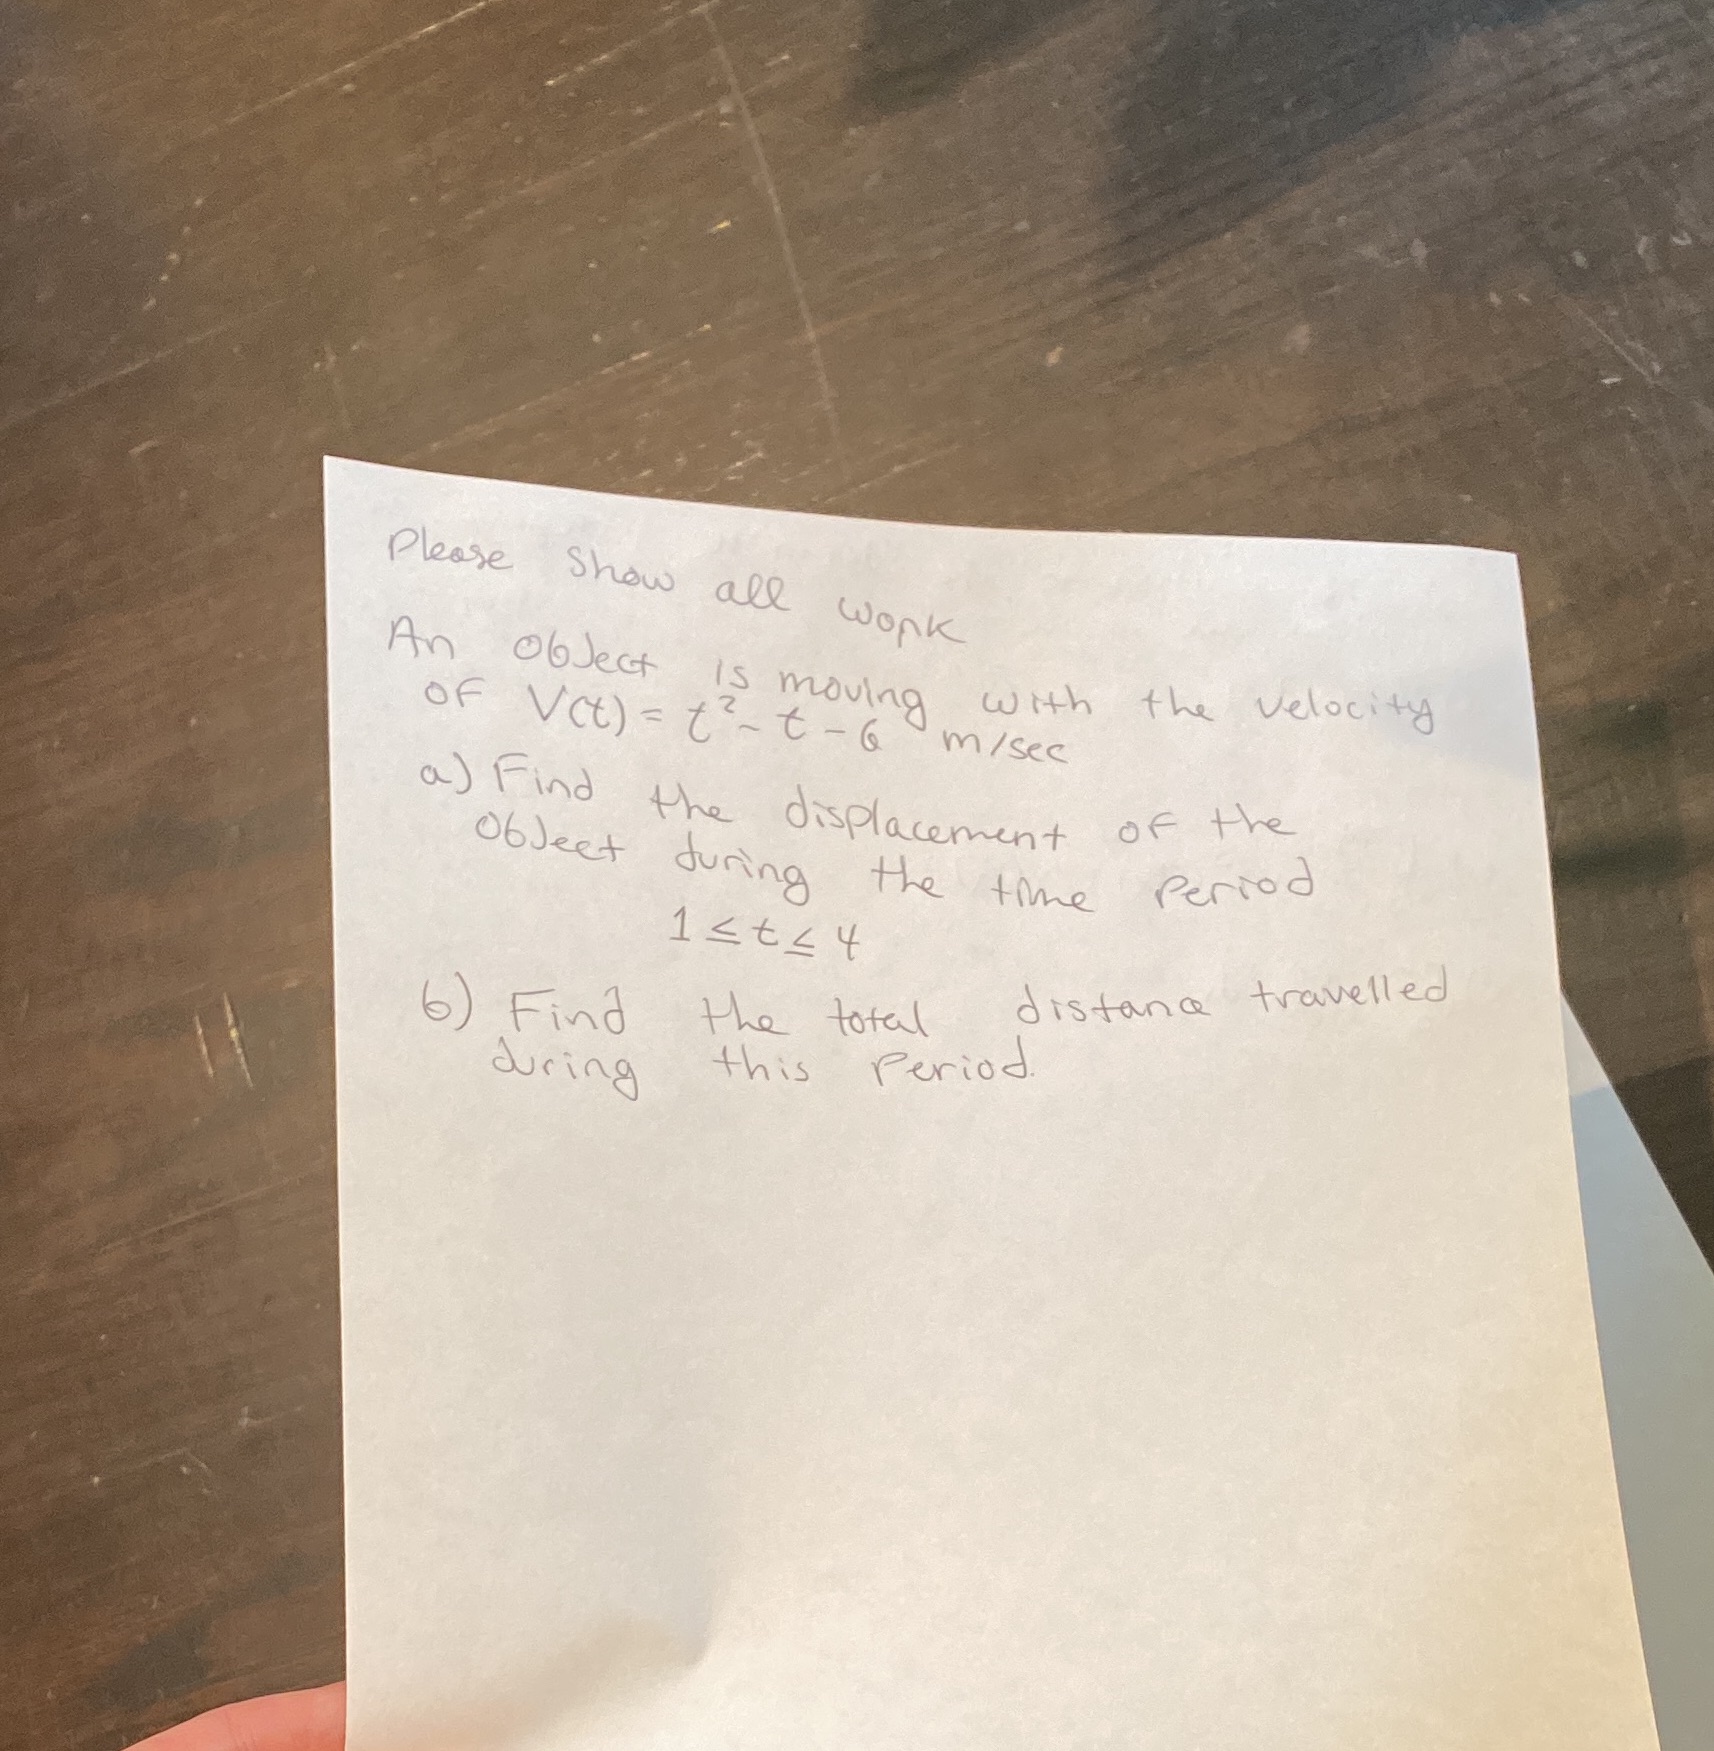 Please show all work
An object is moving with the velocity
of V(t) = t² - t - 6 m/sec
a) Find the displacement of the
object during the time period
1 ≤ t ≤ 4
b) Find the total distance travelled
during this period.